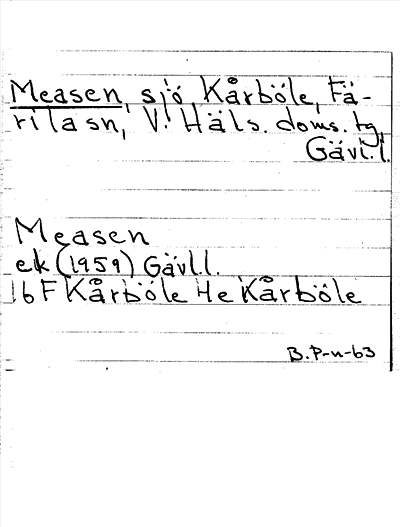 Measen, sjö, Kårböle, Fä-
rila sn, V. Häls. doms. tg,
Gävl. l.
Measen
ek (1959) Gävl. l.
16 F Kårböle 4e Kårböle
B. P-n-63